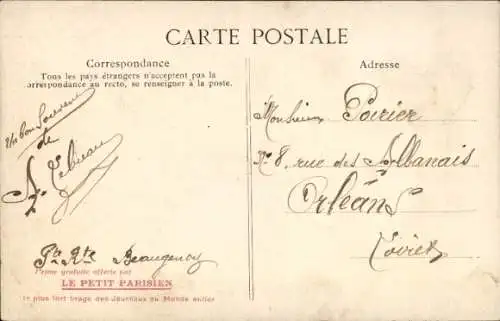 CARTE POSTALE
Correspondance
Tous les pays étrangers n'acceptent pas la
correspondance au recto, se renseigner à la poste.
Un bon Souvenir
de
A.
Pte Rte Beaugency
Prime gratuite offerte par
LE PETIT PARISIEN
le plus fort tirage des Journaux du Monde entier
Adresse
Monsieur Poirier
No 8, rue des Albanais
Orléans
Loiret